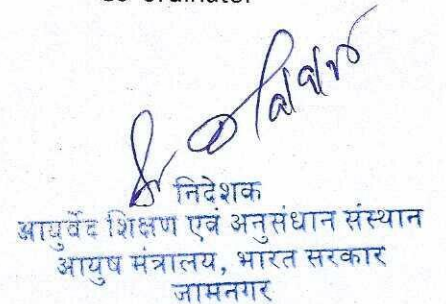 Co-ordinator
निदेशक
आयुर्वेद शिक्षण एवं अनुसंधान संस्थान
आयुष मंत्रालय, भारत सरकार
जामनगर